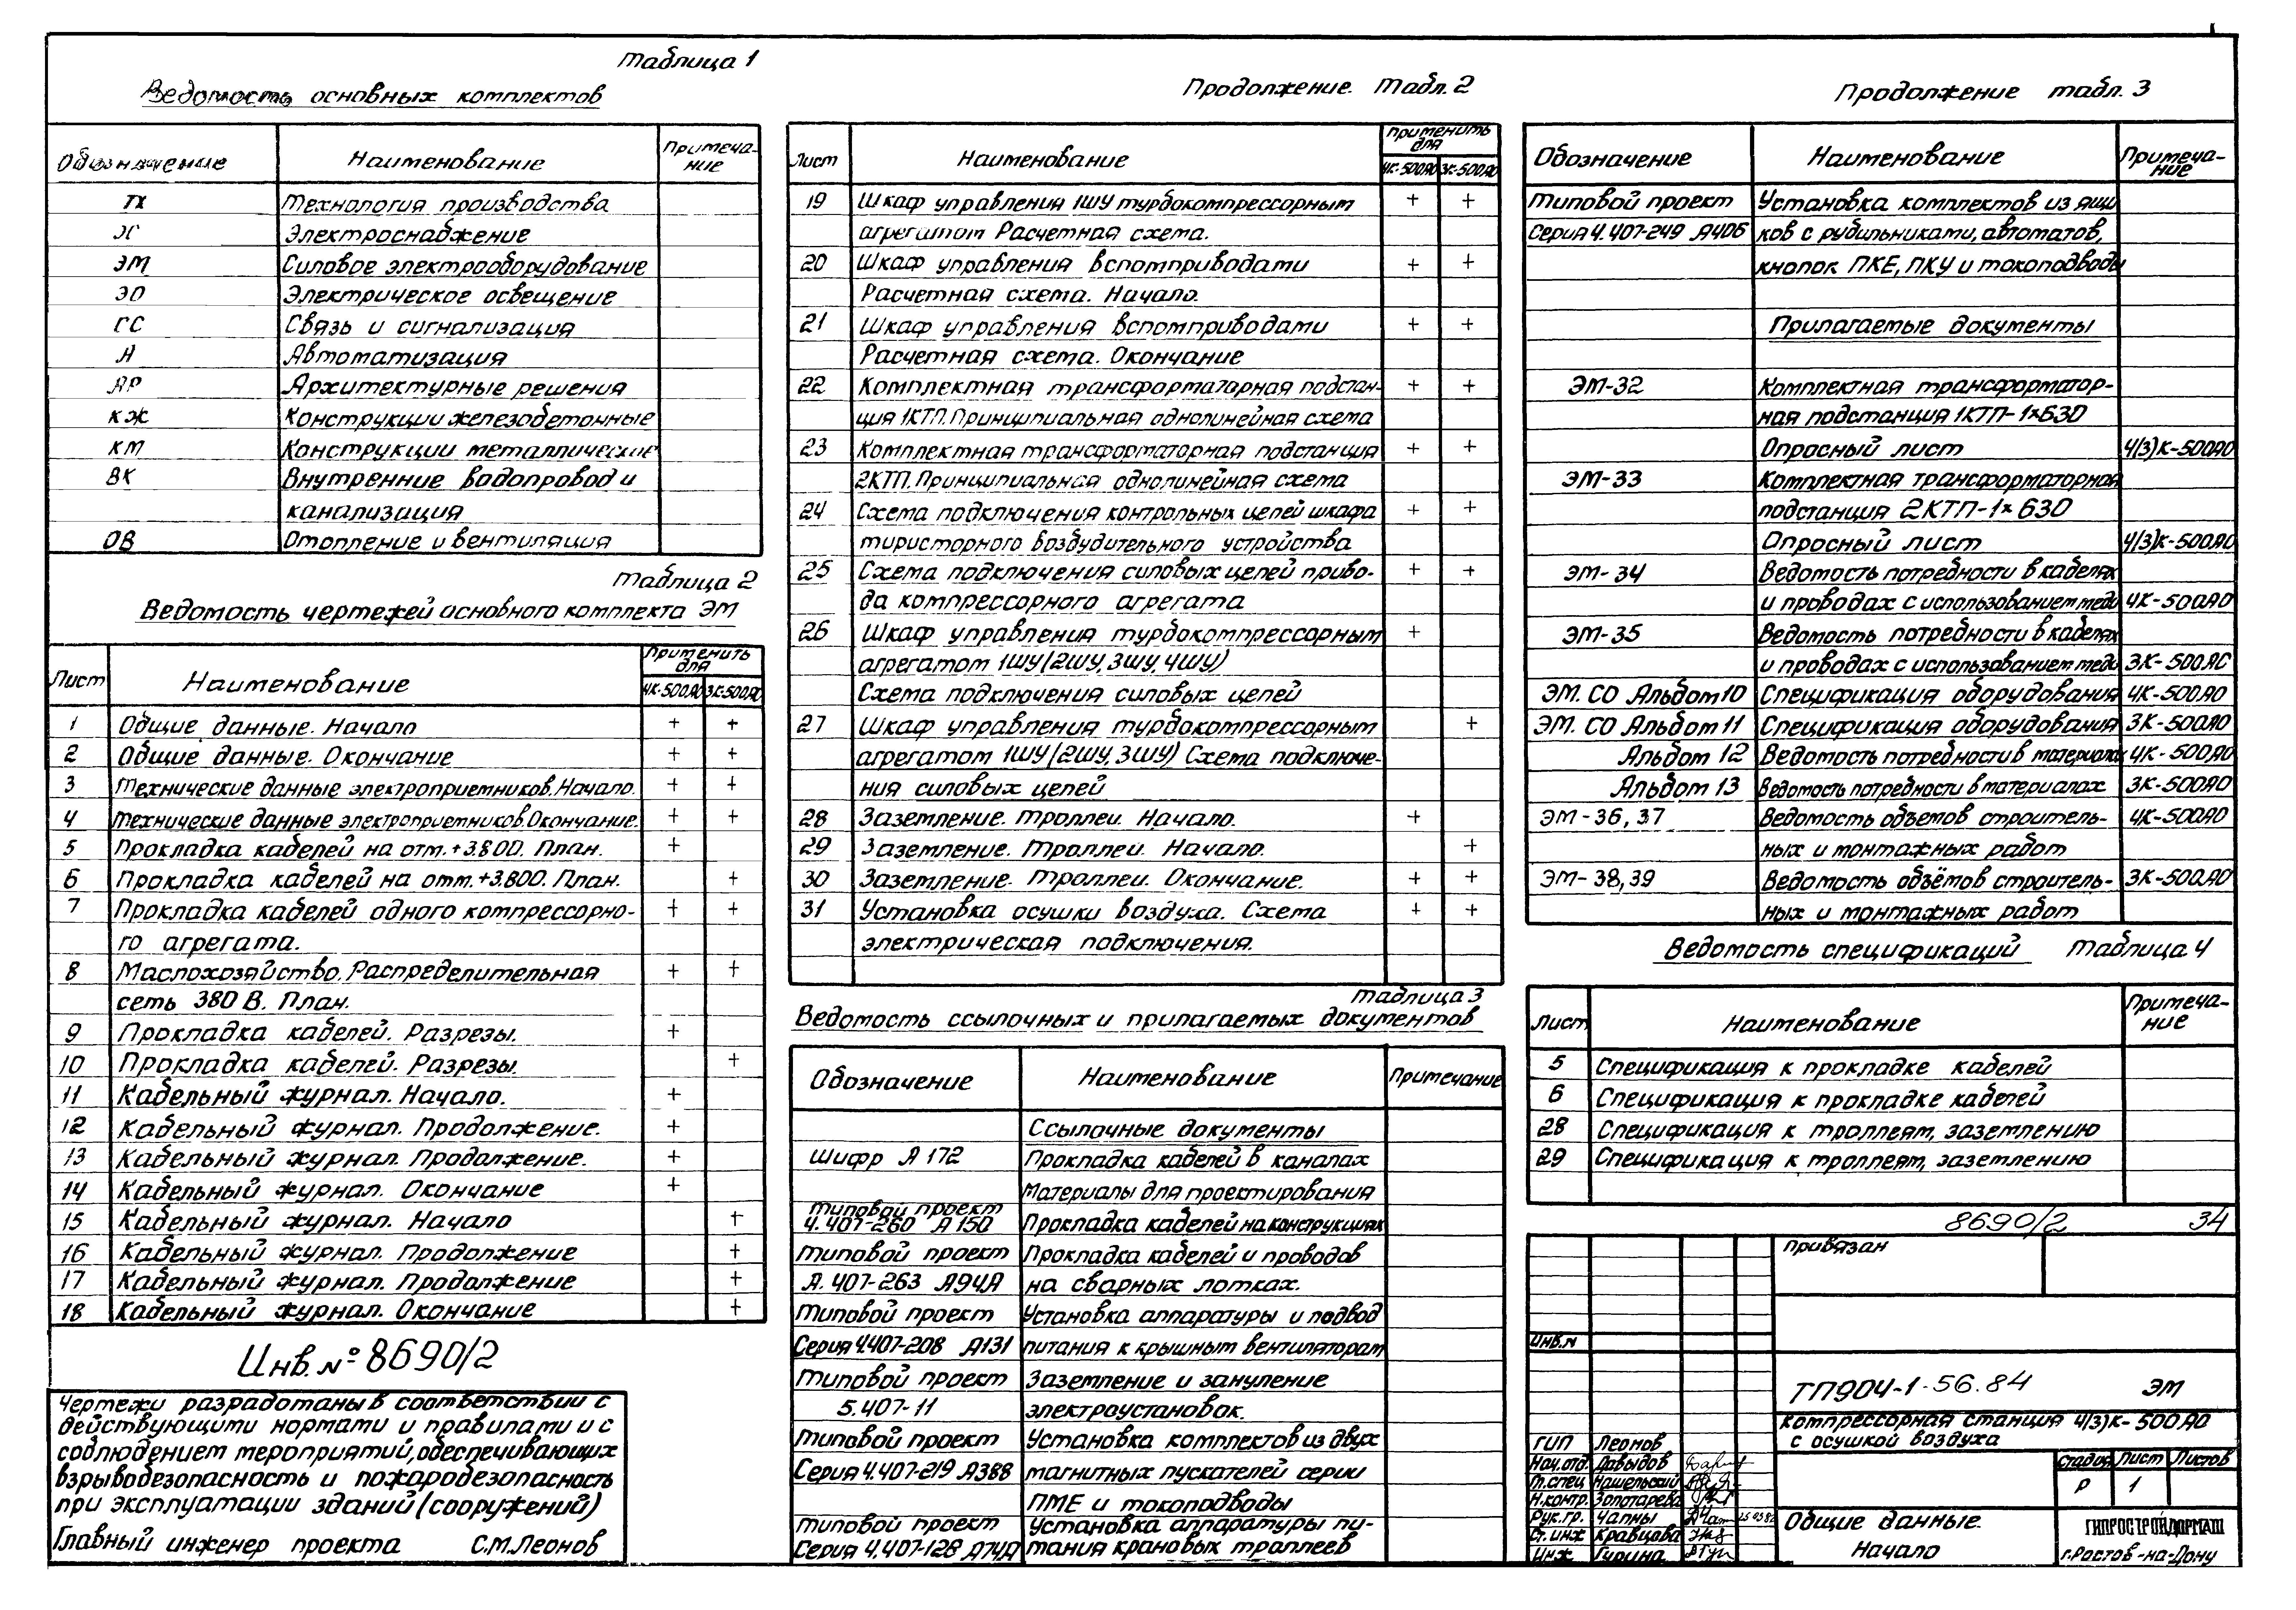 Таблица 1
Ведомость основных комплектов
Обозначение Наименование Примеча-
ние
ТХ Технология производства
ЭС Электроснабжение
ЭМ Силовое электрооборудование
ЭО Электрическое освещение
СС Связь и сигнализация
А Автоматизация
АР Архитектурные решения
КЖ Конструкции железобетонные
КМ Конструкции металлические
ВК Внутренние водопровод и
канализация
ОВ Отопление и вентиляция
Таблица 2
Ведомость чертежей основного комплекта ЭМ
Лист Наименование Применить
для
4К-500АО 3К-500АО
1 Общие данные. Начало + +
2 Общие данные. Окончание + +
3 Технические данные электроприемников. Начало. + +
4 Технические данные электроприемников. Окончание. + +
5 Прокладка кабелей на отм. +3.800. План. +
6 Прокладка кабелей на отм. +3.800. План. +
7 Прокладка кабелей одного компрессорно- + +
го агрегата.
8 Маслохозяйство. Распределительная + +
сеть 380 В. План.
9 Прокладка кабелей. Разрезы. +
10 Прокладка кабелей. Разрезы. +
11 Кабельный журнал. Начало. +
12 Кабельный журнал. Продолжение. +
13 Кабельный журнал. Продолжение. +
14 Кабельный журнал. Окончание +
15 Кабельный журнал. Начало +
16 Кабельный журнал. Продолжение +
17 Кабельный журнал. Продолжение +
18 Кабельный журнал. Окончание +
Инв. № 8690/2
Чертежи разработаны в соответствии с
действующими нормами и правилами и с
соблюдением мероприятий, обеспечивающих
взрывобезопасность и пожаробезопасность
при эксплуатации зданий (сооружений)
Главный инженер проекта С.М. Леонов
Продолжение. Табл. 2
Лист Наименование Применить
для
4К-500АО 3К-500АО
19 Шкаф управления 1ШУ турбокомпрессорным + +
агрегатом Расчетная схема.
20 Шкаф управления вспомприводами + +
Расчетная схема. Начало.
21 Шкаф управления вспомприводами + +
Расчетная схема. Окончание
22 Комплектная трансформаторная подстан- + +
ция 1КТП. Принципиальная однолинейная схема
23 Комплектная трансформаторная подстанция + +
2КТП. Принципиальная однолинейная схема
24 Схема подключения контрольных цепей шкафа + +
тиристорного возбудительного устройства
25 Схема подключения силовых цепей приво- + +
да компрессорного агрегата
26 Шкаф управления турбокомпрессорным +
агрегатом 1ШУ (2ШУ, 3ШУ, 4ШУ)
Схема подключения силовых цепей
27 Шкаф управления турбокомпрессорным +
агрегатом 1ШУ (2ШУ, 3ШУ) Схема подключе-
ния силовых цепей
28 Заземление. Троллеи. Начало. +
29 Заземление. Троллеи. Начало. +
30 Заземление. Троллеи. Окончание. + +
31 Установка осушки воздуха. Схема + +
электрическая подключения.
Таблица 3
Ведомость ссылочных и прилагаемых документов
Обозначение Наименование Примечание
Ссылочные документы
Шифр А 172 Прокладка кабелей в каналах
Материалы для проектирования
Типовой проект
4.407-260 А 150 Прокладка кабелей на конструкциях
Типовой проект Прокладка кабелей и проводов
А. 407-263 А94А на сварных лотках.
Типовой проект Установка аппаратуры и подвод
Серия 4.407-208 А131 питания к крышным вентиляторам
Типовой проект Заземление и зануление
5.407-11 электроустановок.
Типовой проект Установка комплектов из двух
Серия 4.407-219 А388 магнитных пускателей серии
ПМЕ и токоподводы
Типовой проект Установка аппаратуры пи-
Серия 4.407-128 А74А тания крановых троллеев
Продолжение табл. 3
Обозначение Наименование Примеча-
ние
Типовой проект Установка комплектов из ящи
Серия 4.407-249 А406 ков с рубильниками, автоматов,
кнопок ПКЕ, ПКУ и токоподводы
Прилагаемые документы
ЭМ-32 Комплектная трансформатор-
ная подстанция 1КТП-1×630
Опросный лист 4(3)К-500АО
ЭМ-33 Комплектная трансформаторная
подстанция 2КТП-1×630
Опросный лист 4(3)К-500АО
ЭМ-34 Ведомость потребности в кабелях
и проводах с использованием меди 4К-500АО
ЭМ-35 Ведомость потребности в кабелях
и проводах с использованием меди 3К-500АО
ЭМ. СО Альбом 10 Спецификация оборудования 4К-500АО
ЭМ. СО Альбом 11 Спецификация оборудования 3К-500АО
Альбом 12 Ведомость потребности в материалах 4К-500АО
Альбом 13 Ведомость потребности в материалах 3К-500АО
ЭМ-36, 37 Ведомость объемов строитель- 4К-500АО
ных и монтажных работ
ЭМ-38, 39 Ведомость объёмов строитель- 3К-500АО
ных и монтажных работ
Ведомость спецификаций Таблица 4
Лист Наименование Примеча-
ние
5 Спецификация к прокладке кабелей
6 Спецификация к прокладке кабелей
28 Спецификация к троллеям, заземлению
29 Спецификация к троллеям, заземлению
8690/2 34
Привязан
Инв.N
ТП904-1-56.84 ЭМ
Компрессорная станция 4(3)К-500АО
с осушкой воздуха
ГИП Леонов
Нач.отд. Давыдов
Гл.спец Нашельский
Н.контр. Золотарева
Рук.гр. Чапны
Ст.инж Кравцова
Инж Гурина
Стадия Лист Листов
Р 1
Общие данные.
Начало
ГИПРОСТРОЙДОРМАШ
г.Ростов-на-Дону